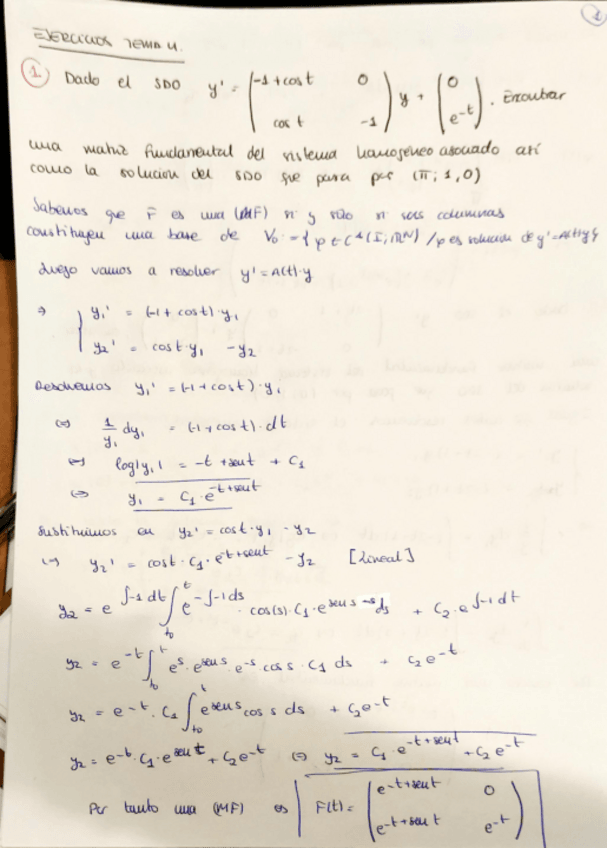 1
EJERCICIOS TEMA 4.
① Dado el SDO y' = \begin{pmatrix} -1+cos t & 0 \\ cos t & -1 \end{pmatrix} y + \begin{pmatrix} 0 \\ e^{-t} \end{pmatrix}. Encontrar
una matriz fundamental del sistema homogéneo asociado así
como la solución del SDO que pasa por (π; 1, 0)
Sabemos que F es una (MF) si y sólo si sus columnas
constituyen una base de V_0 = { φ ∈ C^1(I; R^N) / φ es solución de y' = A(t)y }
Luego vamos a resolver y' = A(t)·y
⇒ { y_1' = (-1+cos t)·y_1
y_2' = cos t·y_1 - y_2
Resolvemos y_1' = (-1+cos t)·y_1
⇔ \frac{1}{y_1} dy_1 = (-1+cos t)·dt
⇔ log|y_1| = -t + sen t + C_1
⇔ y_1 = C_1·e^{-t+sen t}
Sustituimos en y_2' = cos t·y_1 - y_2
⇔ y_2' = cos t·C_1·e^{-t+sen t} - y_2 [Lineal]
y_2 = e^{∫-1 dt} ∫_{t_0}^{t} e^{-∫-1 ds}·cos(s)·C_1·e^{sen s - s} ds + C_2·e^{∫-1 dt}
y_2 = e^{-t} ∫_{t_0}^{t} e^{s}·e^{sen s}·e^{-s} cos s·C_1 ds + C_2 e^{-t}
y_2 = e^{-t}·C_1 ∫_{t_0}^{t} e^{sen s} cos s ds + C_2 e^{-t}
y_2 = e^{-t}·C_1·e^{sen t} + C_2 e^{-t} ⇔ y_2 = C_1·e^{-t+sen t} + C_2 e^{-t}
Por tanto una (MF) es F(t) = \begin{pmatrix} e^{-t+sen t} & 0 \\ e^{-t+sen t} & e^{-t} \end{pmatrix}